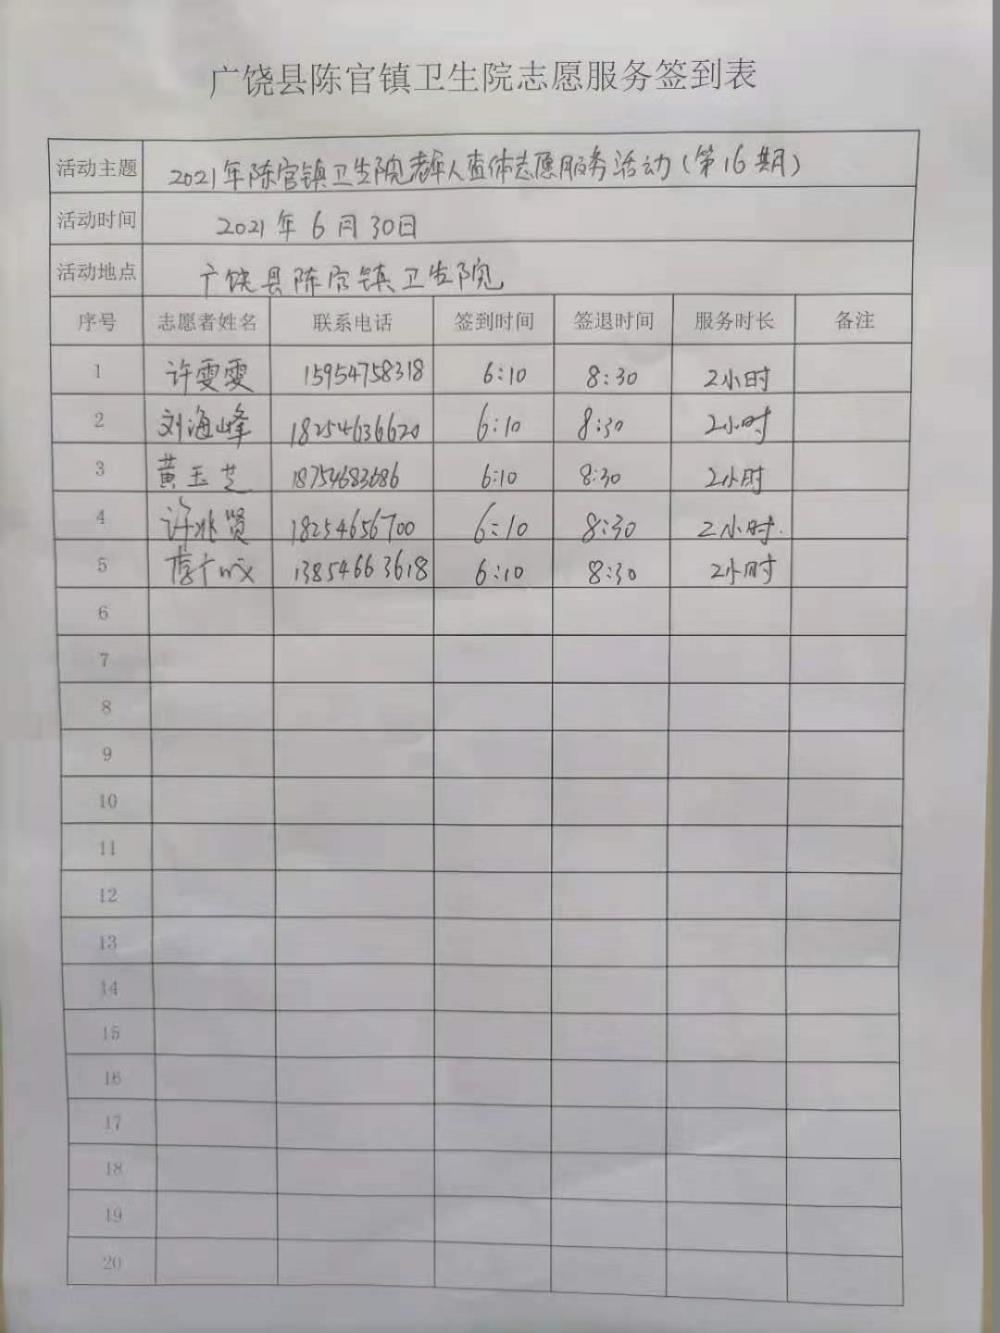 广饶县陈官镇卫生院志愿服务签到表
活动主题 2021年陈官镇卫生院老年人查体志愿服务活动(第16期)
活动时间 2021年6月30日
活动地点 广饶县陈官镇卫生院
序号 志愿者姓名 联系电话 签到时间 签退时间 服务时长 备注
1 许雯雯 15954758318 6:10 8:30 2小时
2 刘海峰 18254636620 6:10 8:30 2小时
3 黄玉芝 18754683686 6:10 8:30 2小时
4 许兆贤 18254656700 6:10 8:30 2小时.
5 13854663618 6:10 8:30 2小时
6
7
8
9
10
11
12
13
14
15
16
17
18
19
20